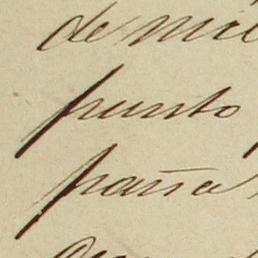 de mil
punto
paña